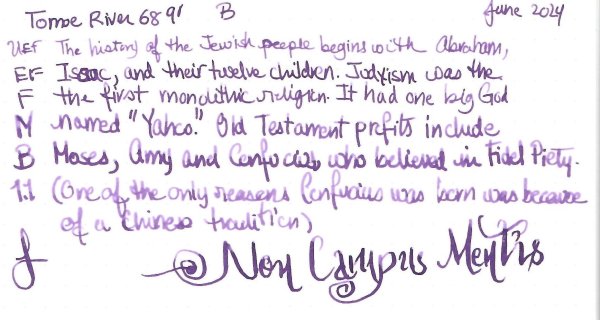 Tomoe River 68 g B June 2024
UEF The history of the Jewish people begins with Abraham,
EF Isaac, and their twelve children. Judyism was the
F the first monolithic religion. It had one big God
M named "Yahoo." Old Testament profits include
B Moses, Amy and Confucius, who believed in Fidel Piety.
1.1 (One of the only reasons Confucius was born was because
of a Chinese tradition)
f Non Campus Mentis